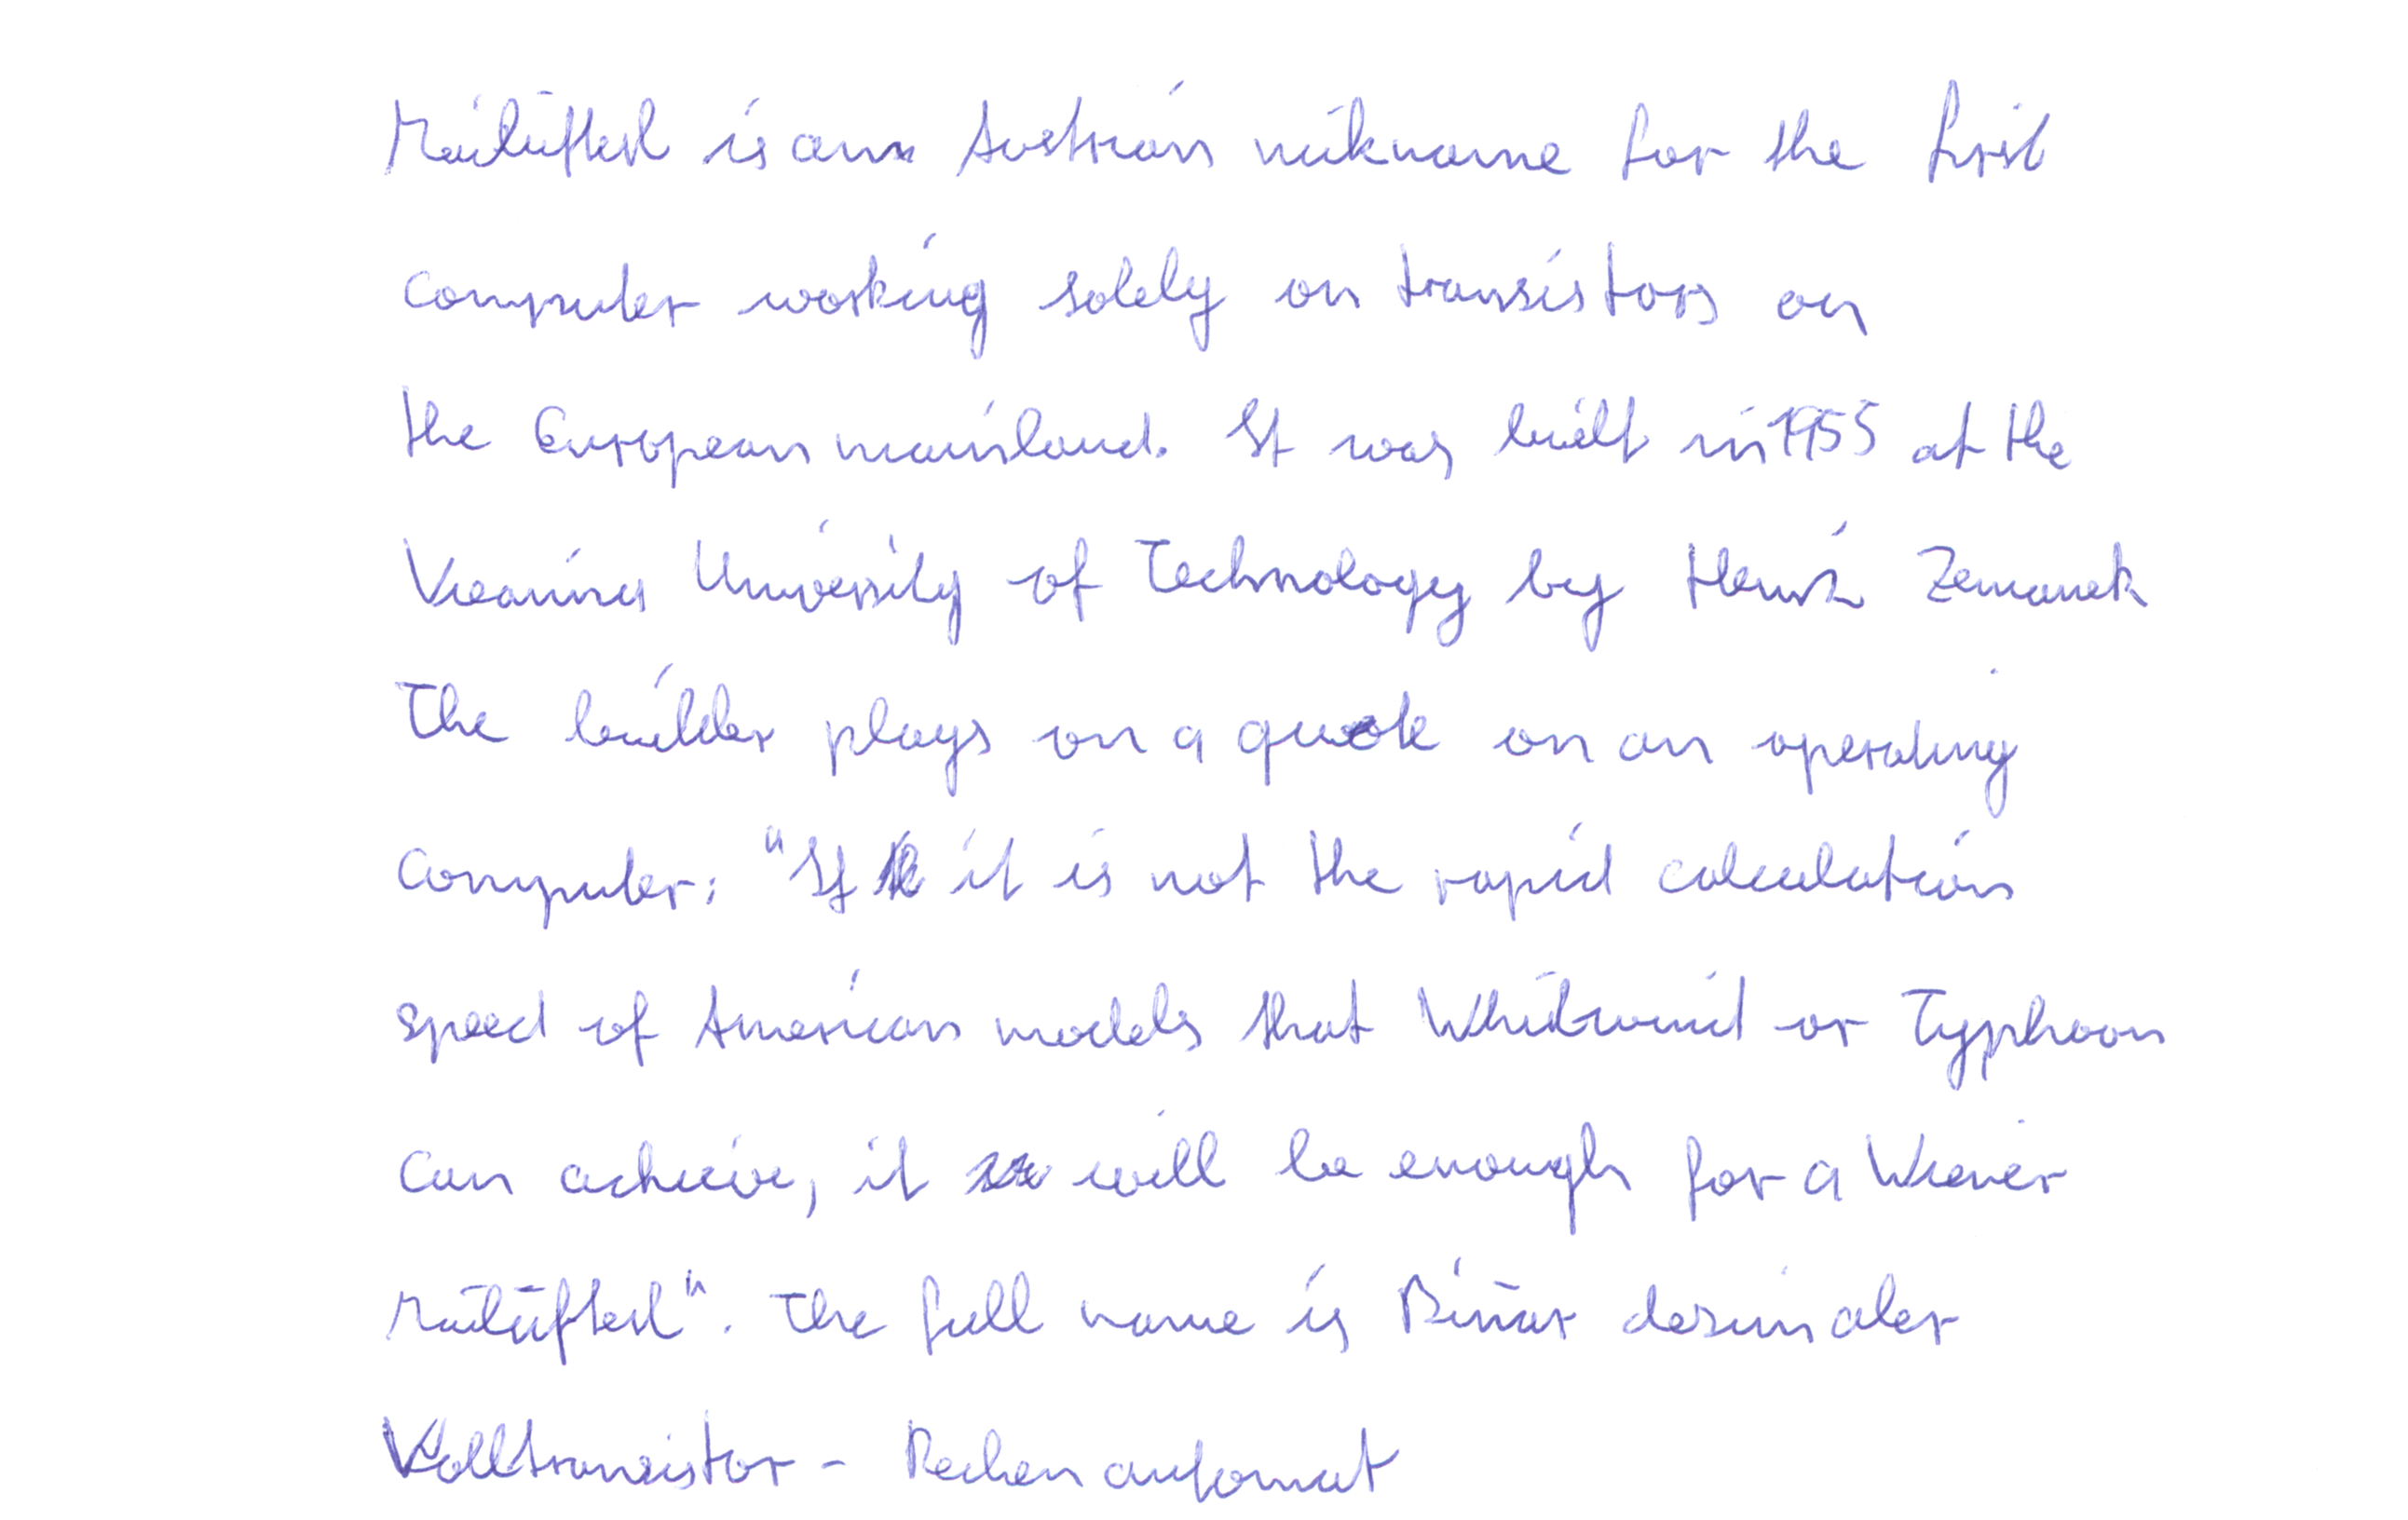 Mailüfterl is an Austrian nickname for the first
computer working solely on transistors on
the European mainland. It was built in 1955 at the
Vienna University of Technology by Heinz Zemanek
The builder plays on a quote on an operating
computer: "If it is not the rapid calculation
speed of American models that Whirlwind or Typhoon
can achieve, it will be enough for a Wiener
Mailüfterl". The full name is Binär dezimaler
Volltransistor - Rechenautomat